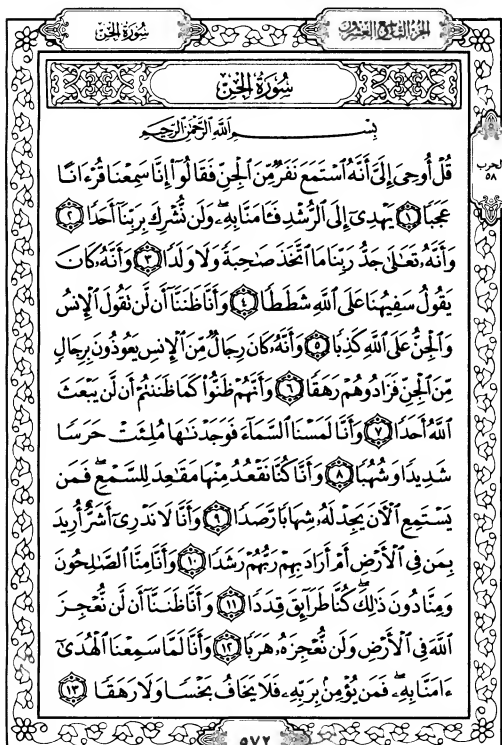 سُورَةُ الجِنّ
الجُزءُ التَّاسِعُ وَالعِشرُونَ
سُورَةُ الجِنّ
بِسْمِ اللَّهِ الرَّحْمَٰنِ الرَّحِيمِ
الحزب
٥٨
قُلْ أُوحِيَ إِلَيَّ أَنَّهُ ٱسْتَمَعَ نَفَرٌ مِّنَ ٱلْجِنِّ فَقَالُوٓا۟ إِنَّا سَمِعْنَا قُرْءَانًا
عَجَبًا ١ يَهْدِىٓ إِلَى ٱلرُّشْدِ فَـَٔامَنَّا بِهِۦ وَلَن نُّشْرِكَ بِرَبِّنَآ أَحَدًا ٢
وَأَنَّهُۥ تَعَٰلَىٰ جَدُّ رَبِّنَا مَا ٱتَّخَذَ صَٰحِبَةً وَلَا وَلَدًا ٣ وَأَنَّهُۥ كَانَ
يَقُولُ سَفِيهُنَا عَلَى ٱللَّهِ شَطَطًا ٤ وَأَنَّا ظَنَنَّآ أَن لَّن تَقُولَ ٱلْإِنسُ
وَٱلْجِنُّ عَلَى ٱللَّهِ كَذِبًا ٥ وَأَنَّهُۥ كَانَ رِجَالٌ مِّنَ ٱلْإِنسِ يَعُوذُونَ بِرِجَالٍ
مِّنَ ٱلْجِنِّ فَزَادُوهُمْ رَهَقًا ٦ وَأَنَّهُمْ ظَنُّوا۟ كَمَا ظَنَنتُمْ أَن لَّن يَبْعَثَ
ٱللَّهُ أَحَدًا ٧ وَأَنَّا لَمَسْنَا ٱلسَّمَآءَ فَوَجَدْنَٰهَا مُلِئَتْ حَرَسًا
شَدِيدًا وَشُهُبًا ٨ وَأَنَّا كُنَّا نَقْعُدُ مِنْهَا مَقَٰعِدَ لِلسَّمْعِ فَمَن
يَسْتَمِعِ ٱلْـَٔانَ يَجِدْ لَهُۥ شِهَابًا رَّصَدًا ٩ وَأَنَّا لَا نَدْرِىٓ أَشَرٌّ أُرِيدَ
بِمَن فِى ٱلْأَرْضِ أَمْ أَرَادَ بِهِمْ رَبُّهُمْ رَشَدًا ١٠ وَأَنَّا مِنَّا ٱلصَّٰلِحُونَ
وَمِنَّا دُونَ ذَٰلِكَ كُنَّا طَرَآئِقَ قِدَدًا ١١ وَأَنَّا ظَنَنَّآ أَن لَّن نُّعْجِزَ
ٱللَّهَ فِى ٱلْأَرْضِ وَلَن نُّعْجِزَهُۥ هَرَبًا ١٢ وَأَنَّا لَمَّا سَمِعْنَا ٱلْهُدَىٰٓ
ءَامَنَّا بِهِۦ فَمَن يُؤْمِنۢ بِرَبِّهِۦ فَلَا يَخَافُ بَخْسًا وَلَا رَهَقًا ١٣
٥٧٢